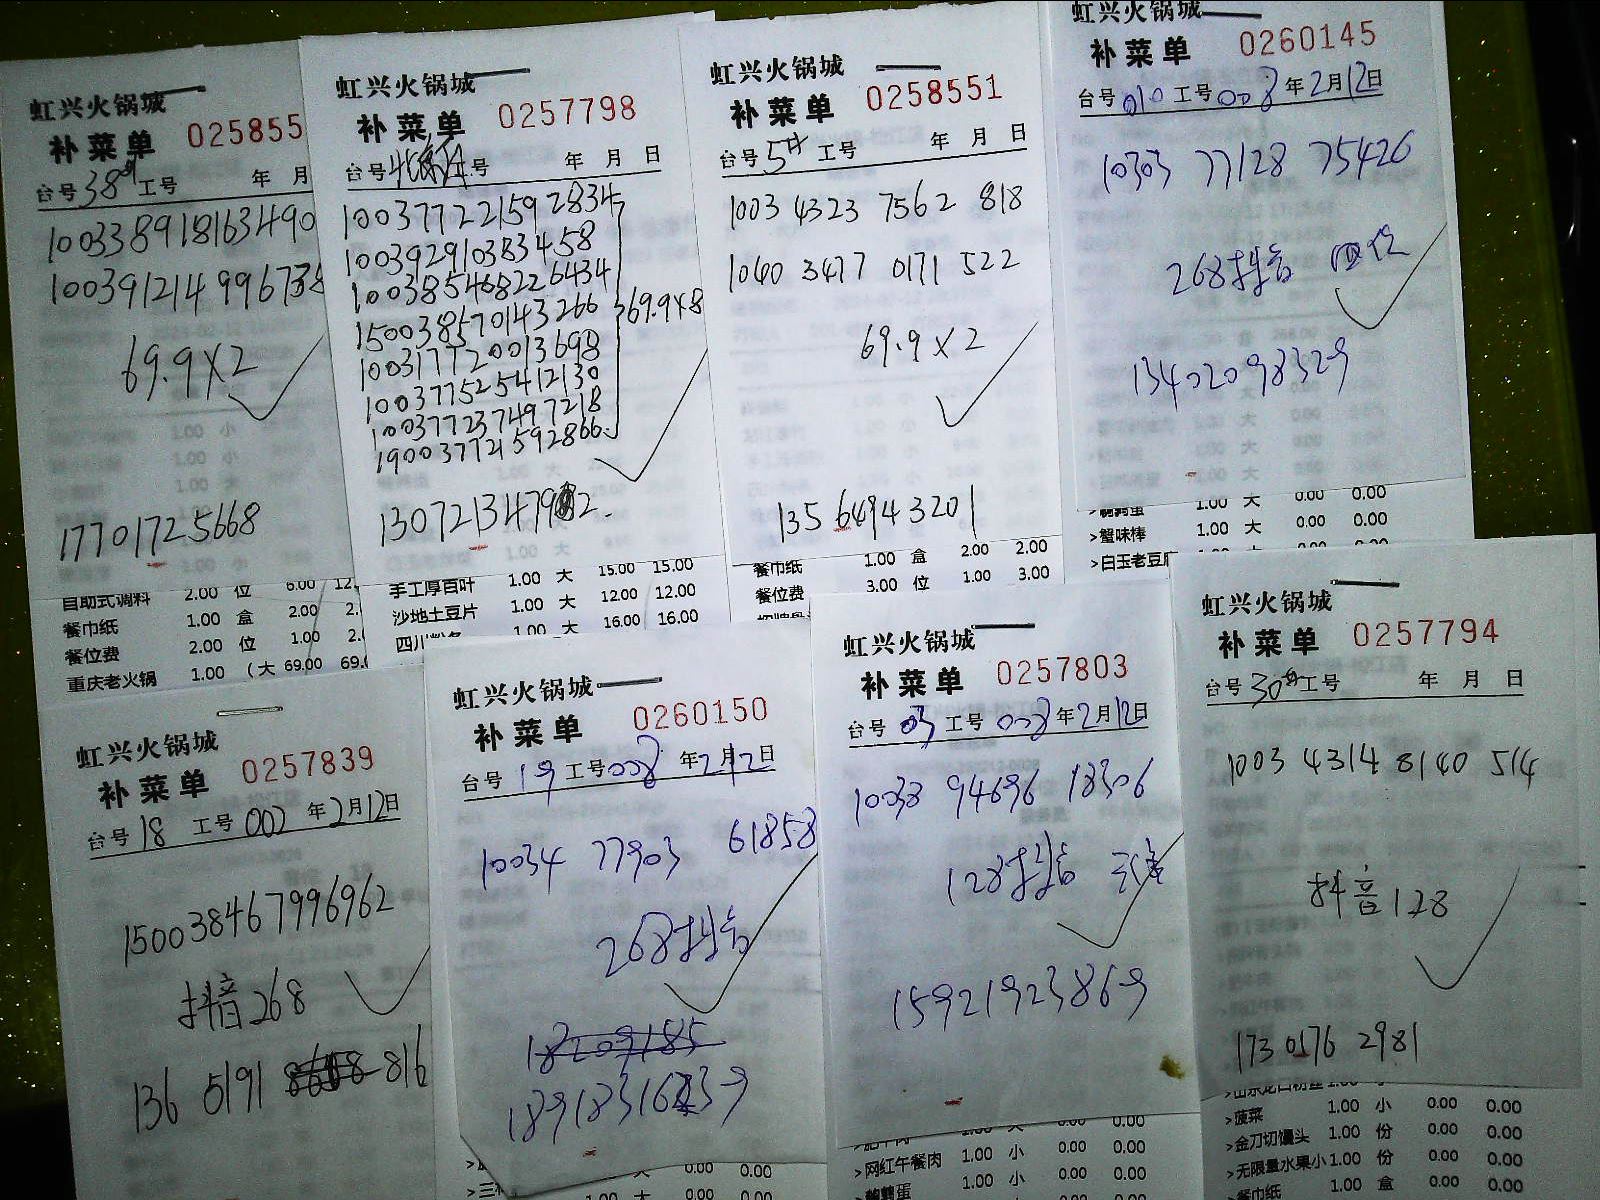 虹兴火锅城
补菜单 025855
台号 38 工号 年 月
100338918163490
100391214996738
69.9×2
17701725668
自助式调料 2.00 位 6.00 12.
餐巾纸 1.00 盒 2.00 2.
餐位费 2.00 位 1.00 2.
重庆老火锅 1.00 (大 69.00 69.
虹兴火锅城
补菜单 0257798
台号 号 年 月 日
100377221592834
100392910383458
1003854682264 34
150038570143266
100317720013698
100377525412130
100377237497218
1900377215928 66
69.9×8
手工厚百叶 1.00 大 15.00 15.00
沙地土豆片 1.00 大 12.00 12.00
四川粉条 1.00 大 16.00 16.00
虹兴火锅城
补菜单 0258551
台号 5 工号 年 月 日
1003 4323 7562 818
1040 3477 0171 522
69.9×2
13564943201
餐巾纸 1.00 盒 2.00 2.00
餐位费 3.00 位 1.00 3.00
虹兴火锅城
补菜单 0260145
台号 010 工号 008 年 2月12日
10303 77128 75426
268抖音 四位
13402098329
>鹌鹑蛋 1.00 大 0.00 0.00
>蟹味棒 1.00 大 0.00 0.00
>白玉老豆腐 1.00 大 0.00 0.00
虹兴火锅城
补菜单 0257839
台号 18 工号 002 年 2月12日
150038467996962
抖音268
136 5191 816
虹兴火锅城
补菜单 0260150
台号 19 工号 008 年 2月12日
10034 77903 61858
268抖音
虹兴火锅城
补菜单 0257803
台号 03 工号 008 年 2月12日
10038 94696 18306
128抖音
15921923869
>网红午餐肉 1.00 小 0.00 0.00
>鹌鹑蛋 1.00 小 0.00 0.00
虹兴火锅城
补菜单 0257794
台号 30 工号 年 月 日
1003 4314 8140 514
抖音128
173 0176 2981
>菠菜 1.00 小 0.00 0.00
>金刀切馒头 1.00 份 0.00 0.00
>无限量水果小 1.00 份 0.00 0.00
餐巾纸 1.00 盒 0.00 0.00